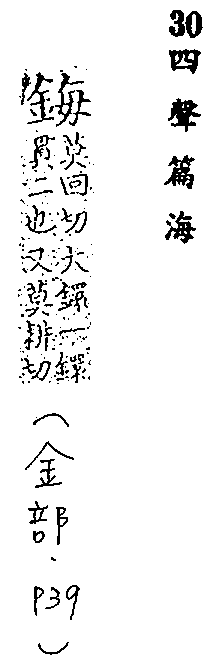 30四聲篇海
鋂莫回切大鐶一鐶
貫二也又莫排切
(金部．P39)